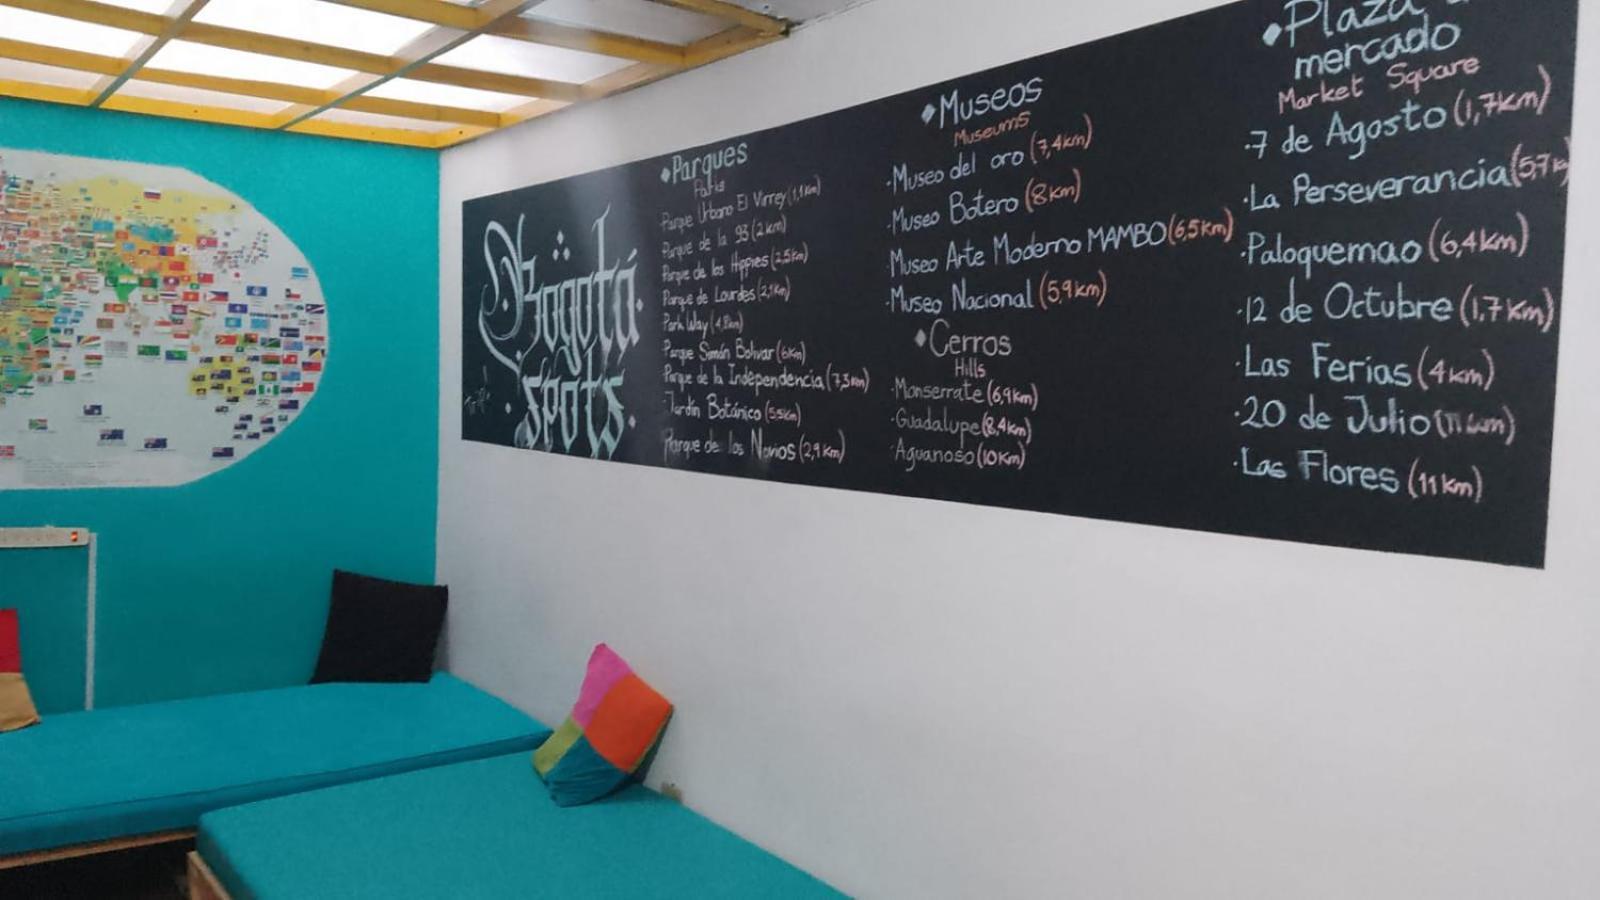 Bogotá
spots
Parques
Parks
Parque Urbano El Virrey (1,1km)
Parque de la 93 (2km)
Parque de los Hippies (2,5km)
Parque de Lourdes (2,1km)
Park Way (4,8km)
Parque Simón Bolivar (6km)
Parque de la Independencia (7,3km)
Jardín Botánico (5,5km)
Parque de los Novios (2,9km)
Museos
Museums
·Museo del oro (7,4km)
·Museo Botero (8km)
·Museo Arte Moderno MAMBO (6,5km)
·Museo Nacional (5,9km)
Cerros
Hills
·Monserrate (6,9km)
·Guadalupe (8,4km)
·Aguanoso (10km)
Plaza
mercado
Market Square
·7 de Agosto (1,7km)
·La Perseverancia (5,7k
·Paloquemao (6,4km)
·12 de Octubre (1,7km)
·Las Ferias (4km)
·20 de Julio
·Las Flores (11km)